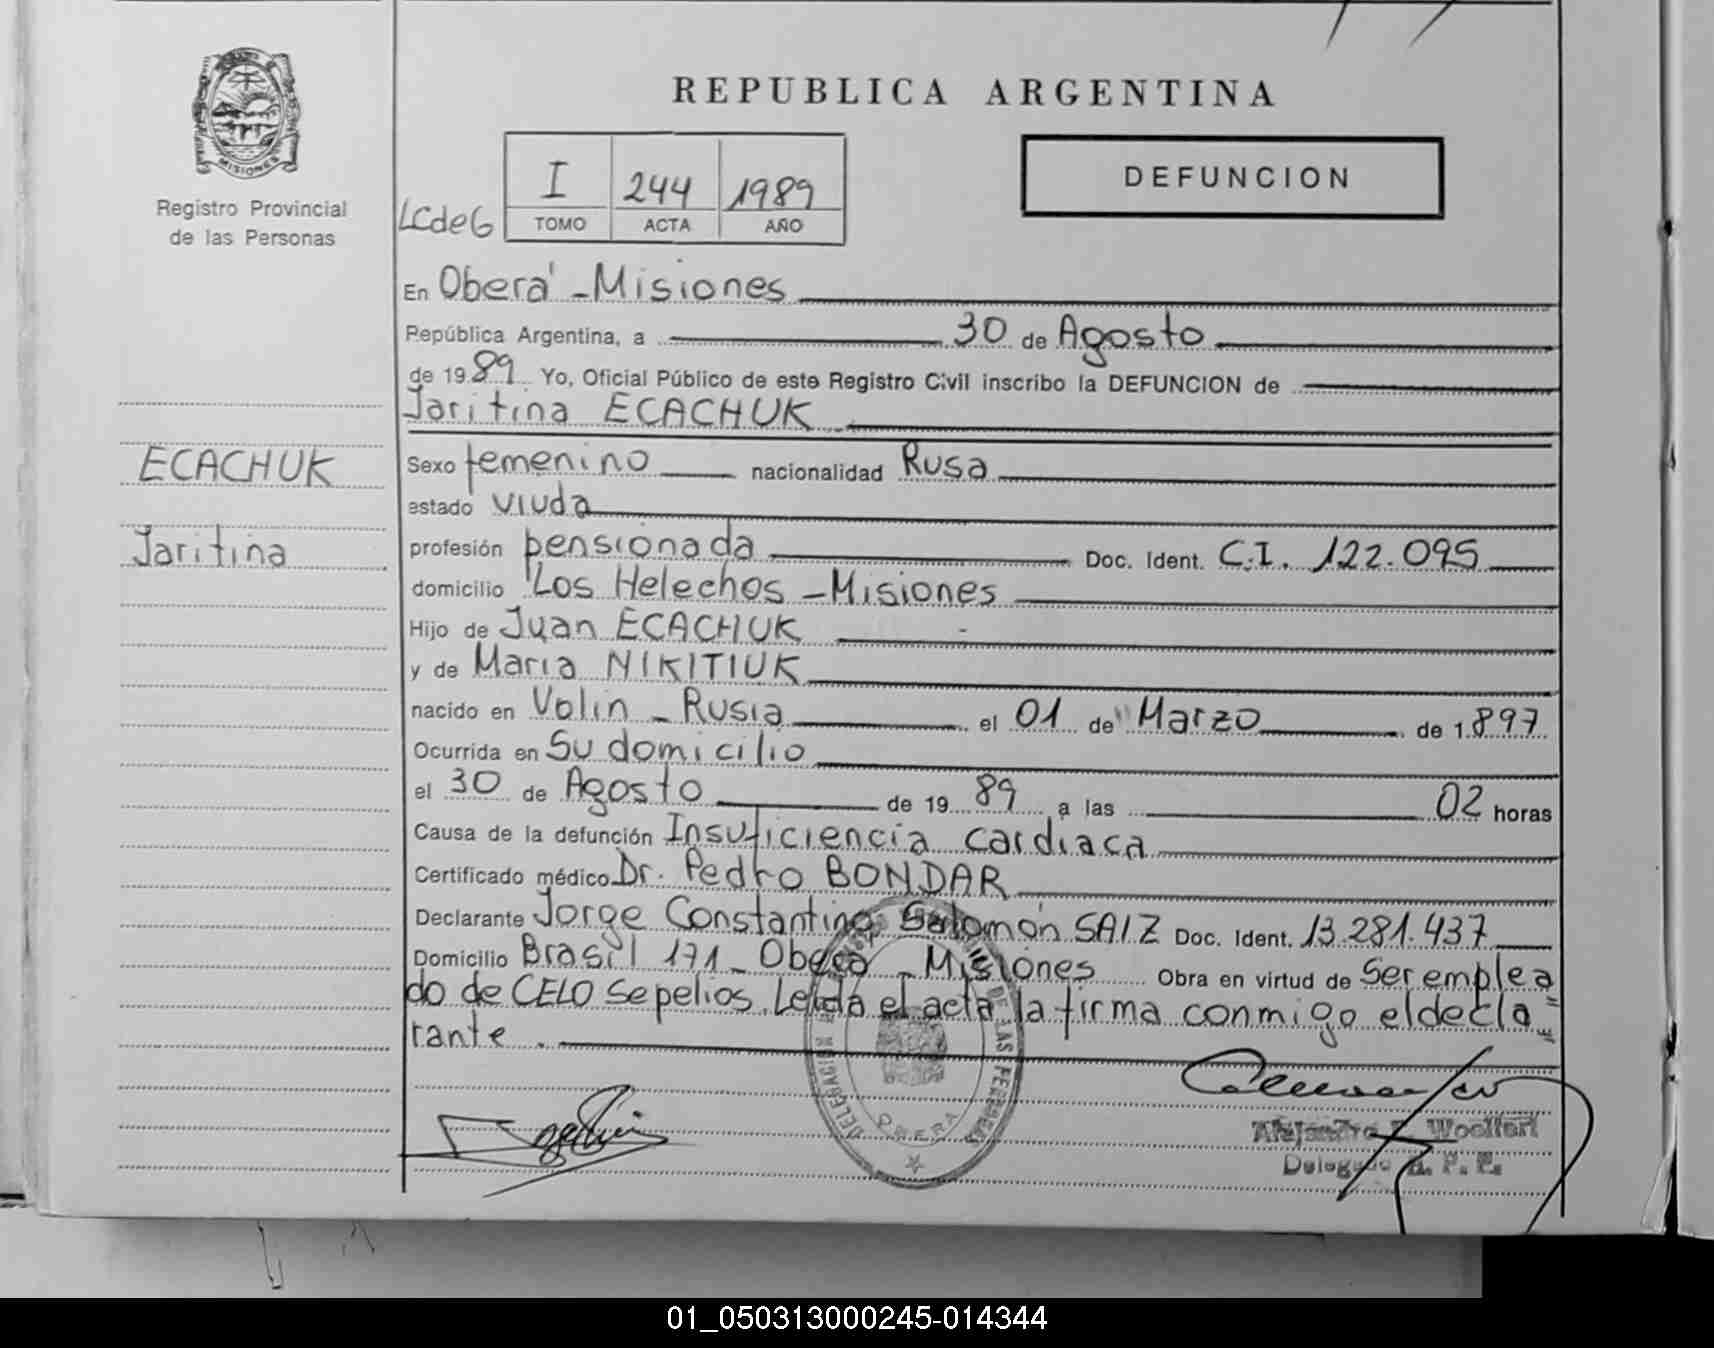 REPUBLICA ARGENTINA
MISIONES
Registro Provincial
de las Personas
DEFUNCION
LCdeG
I 244 1989
TOMO ACTA AÑO
En Oberá - Misiones
República Argentina, a 30 de Agosto
de 1989 Yo, Oficial Público de este Registro Civil inscribo la DEFUNCION de
Jaritina ECACHUK
ECACHUK
Jaritina
Sexo femenino nacionalidad Rusa
estado viuda
profesión pensionada Doc. Ident. C.I. 122.095
domicilio Los Helechos - Misiones
Hijo de Juan ECACHUK
y de María NIKITIUK
nacido en Volin - Rusia el 01 de Marzo de 1.897
Ocurrida en Su domicilio
el 30 de Agosto de 1989 a las 02 horas
Causa de la defunción Insuficiencia cardiaca
Certificado médico Dr. Pedro BONDAR
Declarante Jorge Constantino Salomón SAIZ Doc. Ident. 13.281.437
Domicilio Brasil 171 - Oberá - Misiones Obra en virtud de Ser emplea
do de CELO Sepelios. Leida el acta la firma conmigo el decla
rante.
DE LAS PERSONAS
OBERA
Alejandro Woelfert
Delegado R. P. P.
01_050313000245-014344